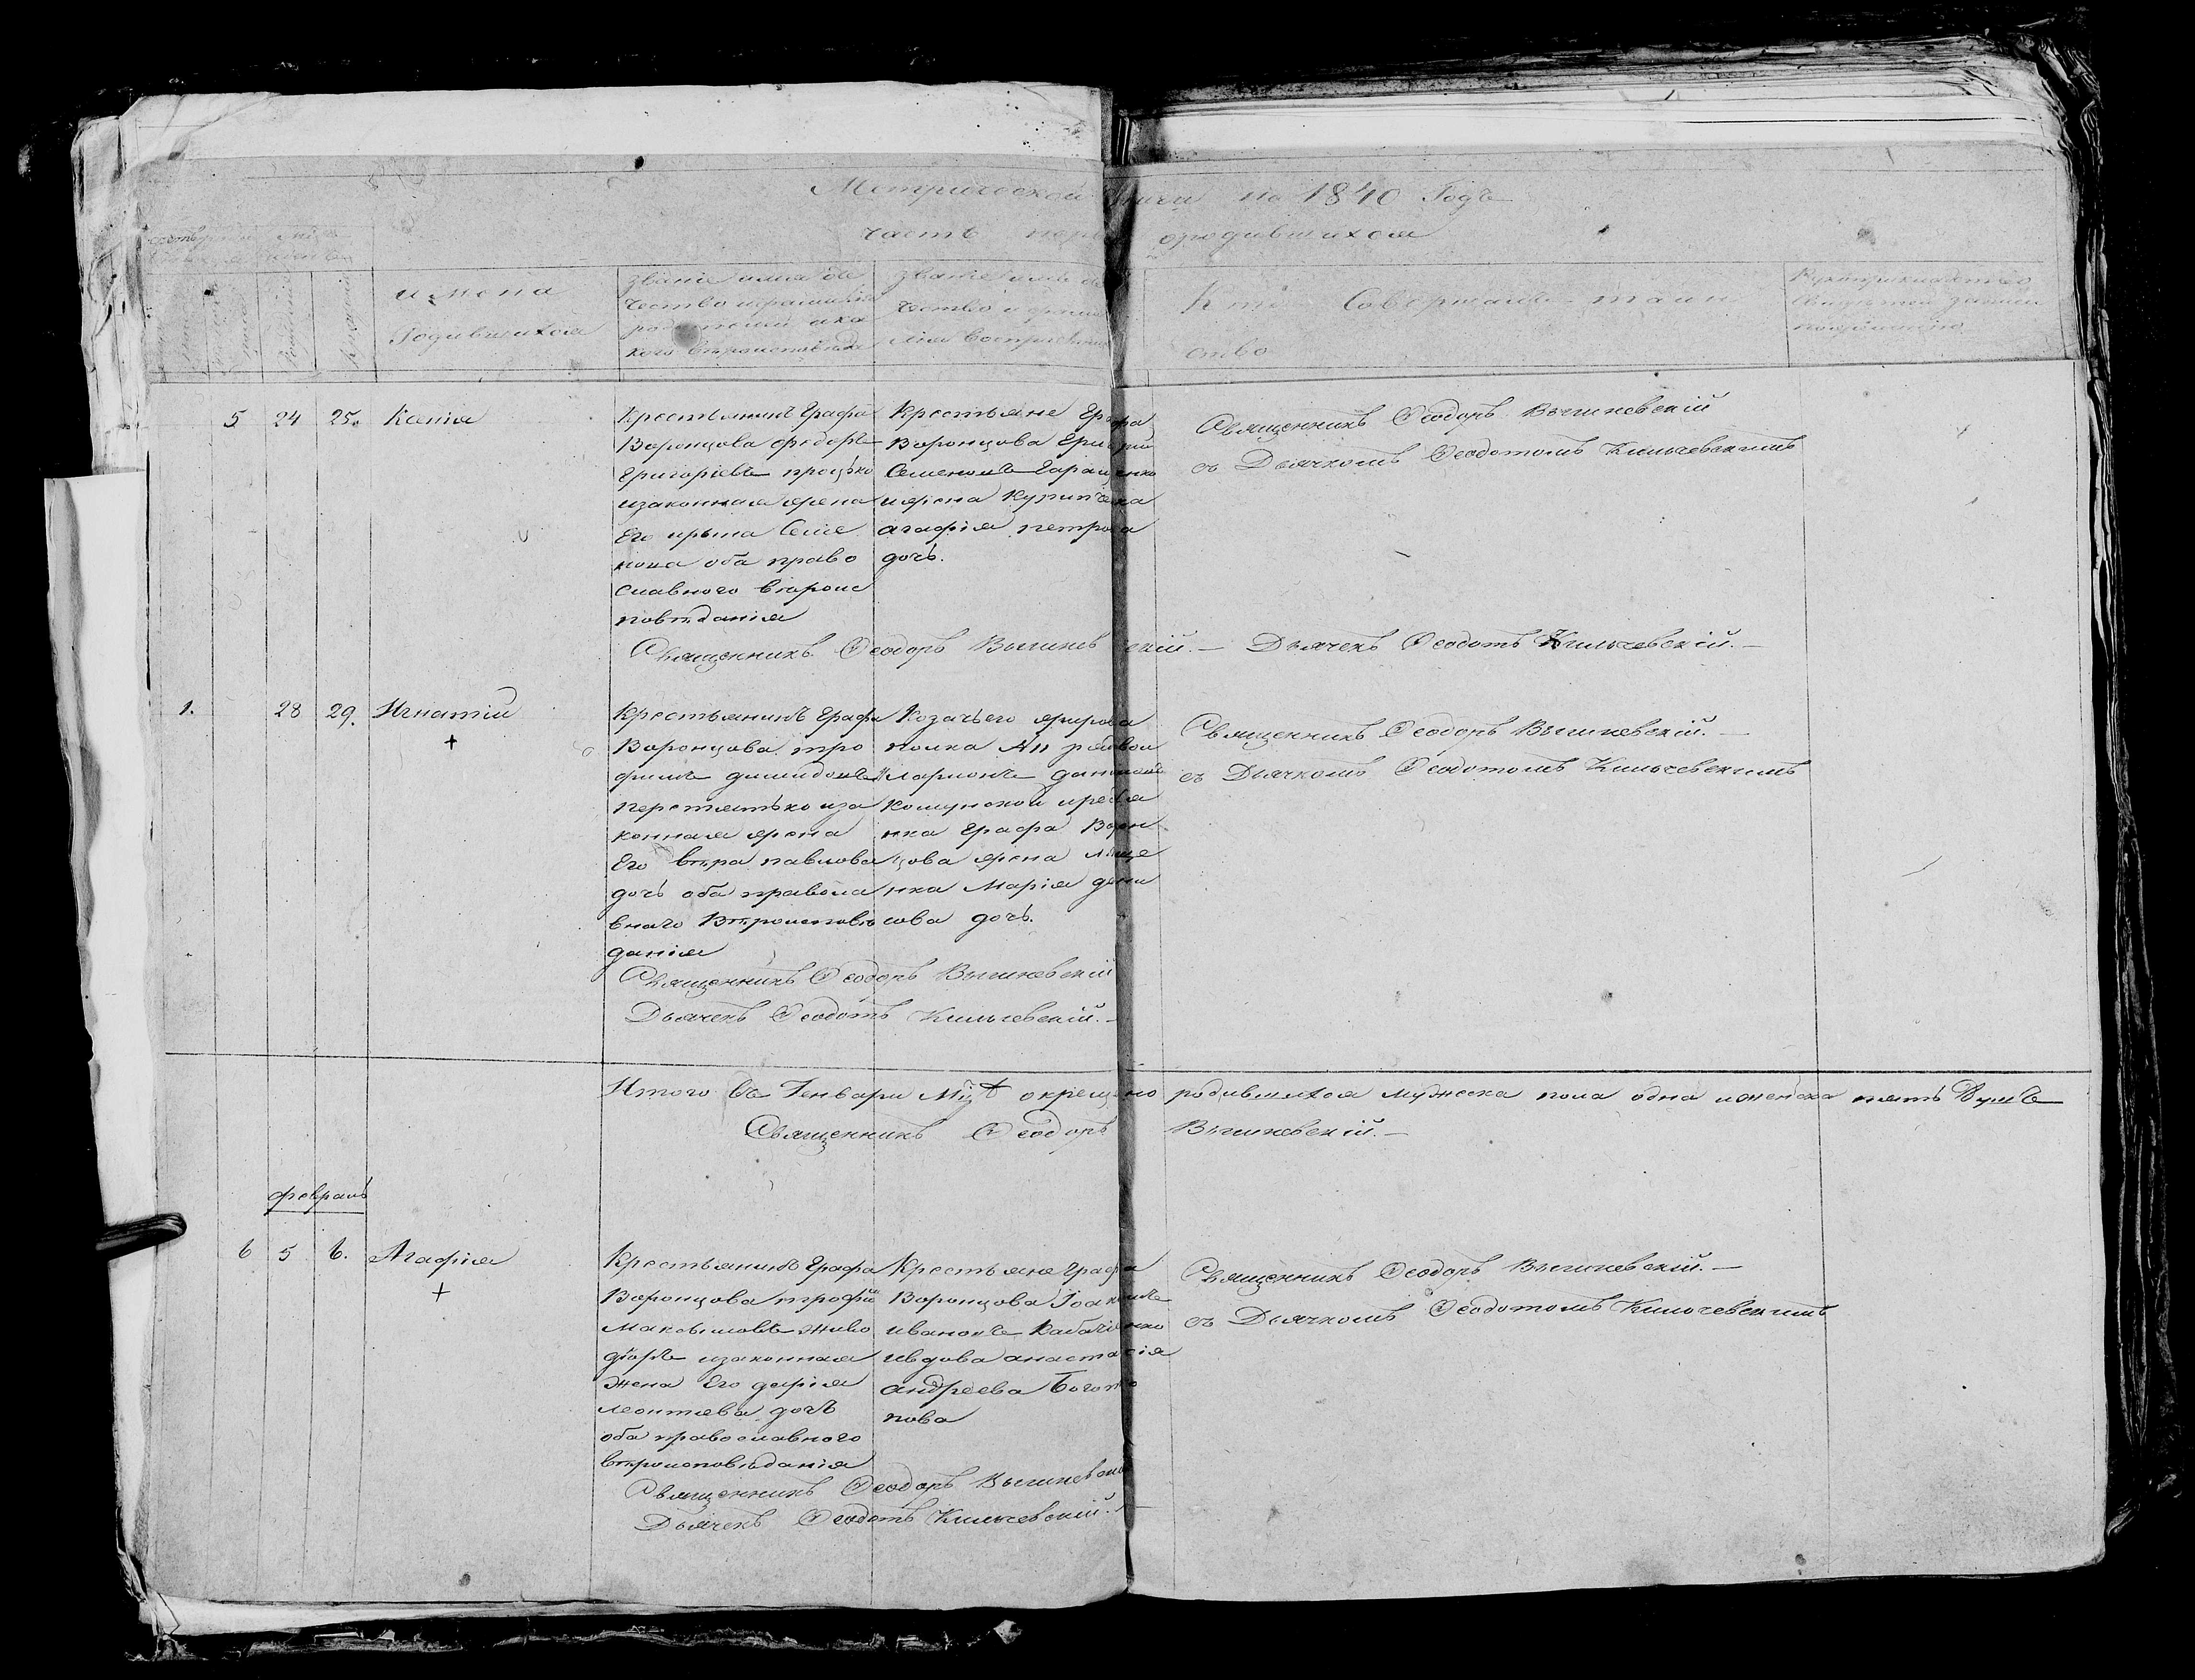 Метрической книги на 1840 Годъ
часть пер ородившихся
имена
Родившихся
званіе имя оте
чество ифамилія
родителей ика
кого вѣроисповѣда
званіе имя от
чество и фами
лія воспріемни
Кто Совершалъ таин
ство
5 24 25. Ксенія
Крестьянинъ Графа
Воронцова Фюдоръ
Григоріевъ процко
изаконная жена
Его ирына Семе
нова оба право
славного вѣроис
повѣданія
Крестьяне Графа
Воронцова Григорій
Семеновъ Гаращенко
ижена
агафія петрова
дочь.
Священникъ Ѳеодоръ Вышневскій
съ Дьячкомъ Ѳеодотомъ Кильчевскимъ
Священникъ Ѳеодоръ Вышневскій. — Дьячекъ Ѳеодотъ Кильчевскій. —
1. 28 29. Игнатій
+
Крестьянинъ Графа
Воронцова тро
фимъ
изо
конная жена
Его вѣра павлова
дочь оба правосла
внаго Вѣроисповѣ
данія
Козачьего
полка
Иларионъ
Графа Ворон
цова жена
нка Марія дени
сова дочь.
Священникъ Ѳеодоръ Вышневскій. —
съ Дьячкомъ Ѳеодотомъ Кильчевскимъ
Священникъ Ѳеодоръ Вышневскій
Дьячекъ Ѳеодотъ Кильчевскій. —
Итого въ Генвари Мцѣ окрещено родившихся мужеска пола одна иженска пять Душъ
Священникъ Ѳеодоръ Вышневскій. —
февраль
6 5 6. Агафія
+
Крестьянинъ Графа
Воронцова трофим
Максымовъ Живо
дюръ изаконная
Жена Его дарія
леонтѣва дочь
оба православного
вѣроисповѣданія
Крестьяне Графа
Воронцова Іоакимъ
ивановъ Кабаченко
ивдова анастасія
андреева
пова
Священникъ Ѳеодоръ Вышневскій. —
съ Дьячкомъ Ѳеодотомъ Кильчевскимъ
Священникъ Ѳеодоръ Вышневскій
Дьячекъ Ѳеодотъ Кильчевскій. —